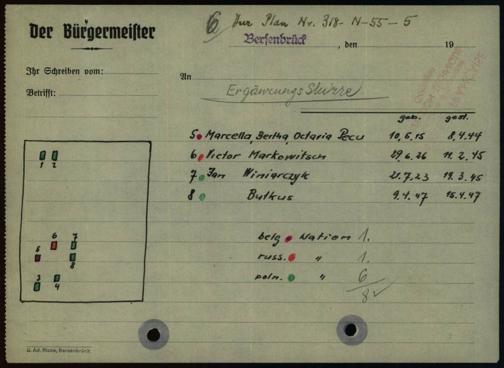 6 Zur Plan Nr. 318-N-55-5
Der Bürgermeister
Bersenbrück, den 19
Ihr Schreiben vom:
An
Betrifft:
Ergänzungsskizze
geb. gest.
5 Marcella, Bertha, Octavia Pecu 10,6,15 8,4.44
6 Victor Markowitsch 29.6.26 11.2.45
7 Jan Winiarczyk 21.7.23 19.3.45
8 Butkus 9.4.47 15.4.47
1 2
6 7
5
8
3 4
belg Nation 1.
russ. " 1.
poln. " 6
8
G. Ad. Bersenbrück